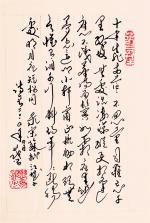 十年生死兩茫茫不思量自難忘千
里孤墳無處話淒涼縱使相逢
應不識塵滿面鬢如霜夜來幽
夢忽還鄉小軒窗正梳妝相
顧無言惟有淚千行料得年年腸斷
處明月夜短松岡東坡蘇軾江城子